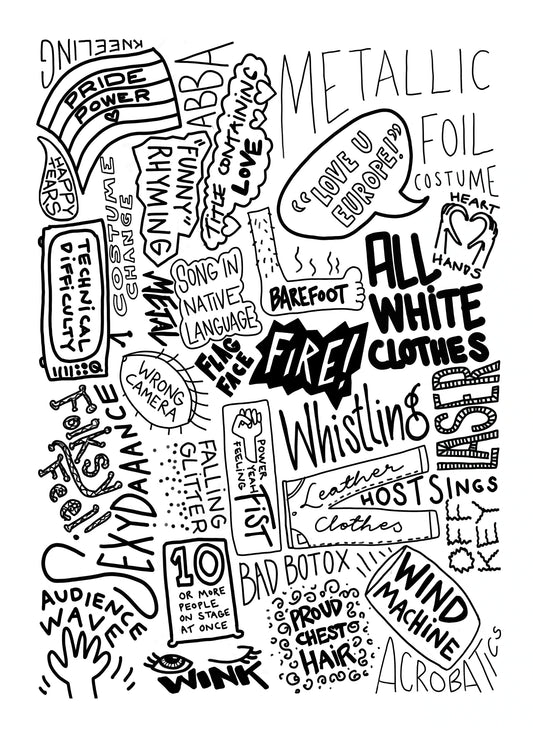 KNEELING
PRIDE
POWER
ABBA
TITLE CONTAINING
LOVE
METALLIC
FOIL
COSTUME
"LOVE U
EUROPE!"
HAPPY
TEARS
COSTUME
CHANGE
"FUNNY"
RHYMING
HEART
HANDS
TECHNICAL
DIFFICULTY
METAL
SONG IN
NATIVE
LANGUAGE
BAREFOOT
ALL
WHITE
CLOTHES
FLAG
FACE
FIRE!
WRONG
CAMERA
Whistling
LASER
Folksy
Feel!
SEXYDAAANCE
FALLING
GLITTER
POWER
YEAH
FEELING
FIST
Leather
Clothes
HOST SINGS
OFF
KEY
10
OR MORE
PEOPLE
ON STAGE
AT ONCE
BAD BOTOX
WIND
MACHINE
AUDIENCE
WAVE
PROUD
CHEST
HAIR
WINK
ACROBATICS